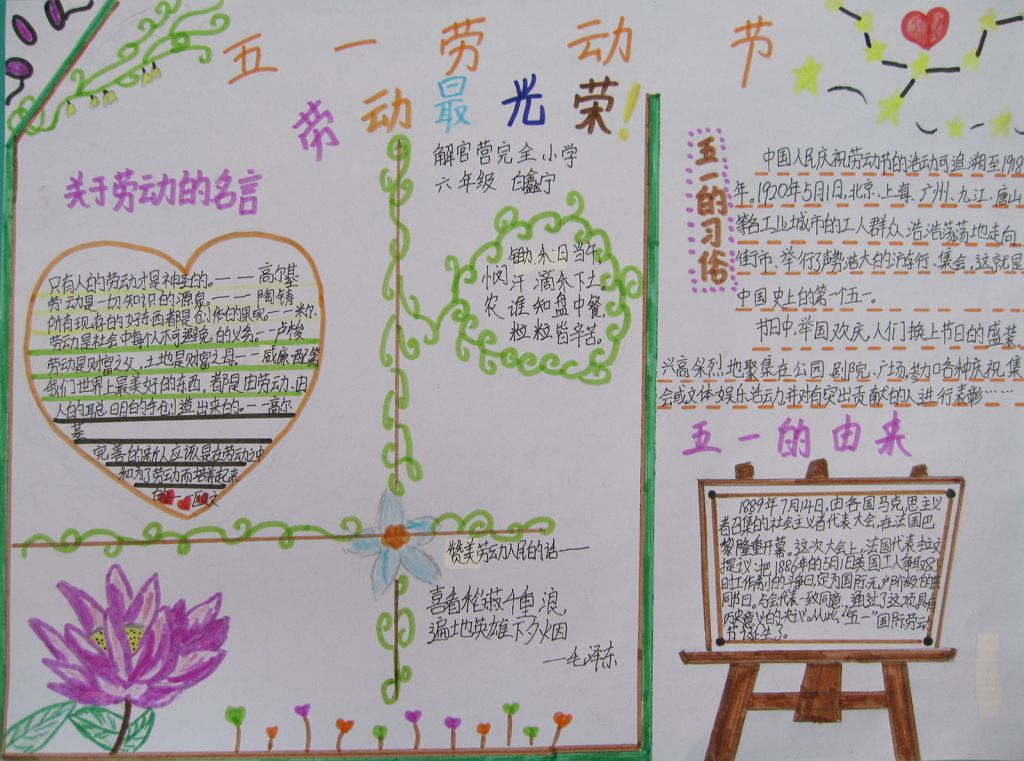 五一劳动节
劳动最光荣!
解官营完全小学
六年级 白鑫宁
关于劳动的名言
只有人的劳动才是神圣的。——高尔基
劳动是一切知识的源泉。——陶铸
所有现存的好东西都是创作的果实——米尔
劳动是社会中每个人不可避免的义务。——卢梭
劳动是财富之父,土地是财富之母——威廉·配第
我们世界上最美好的东西,都是由劳动、由
人的聪明的手创造出来的。——高尔
基
完善的新人应该是在劳动之中
和为了劳动而培养起来
的——欧文
锄禾日当午,
汗滴禾下土。
谁知盘中餐
粒粒皆辛苦。
悯
农
赞美劳动人民的话——
喜看稻菽千重浪,
遍地英雄下夕烟
——毛泽东
五一的习俗
中国人民庆祝劳动节的活动可追溯至1918
年。1920年5月1日,北京、上海、广州、九江、唐山
等各工业城市的工人群众浩浩荡荡地走向
街市、举行了声势浩大的游行、集会,这就是
中国史上的第一个五一。
节日中,举国欢庆,人们换上节日的盛装,
兴高采烈地聚集在公园、剧院、广场,参加各种庆祝集
会或文体娱乐活动,并对有突出贡献的人进行表彰……
五一的由来
1889年7月14日,由各国马克思主义
者召集的社会主义者代表大会,在法国巴
黎隆重开幕。这次大会上,法国代表拉文
提议:把1886年的5月1日美国工人争取8小
时工作制的斗争日,定为国际无产阶级的共
同节日。与会代表一致同意,通过了这项具有
历史意义的决议。从此,“五一”国际劳动
节诞生了。